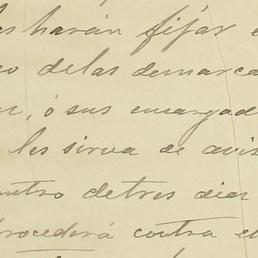 as harán fijar e
o delas demarca
n, ó sus encargad
les sirva de avis
entro detres dias
rocederá contra el